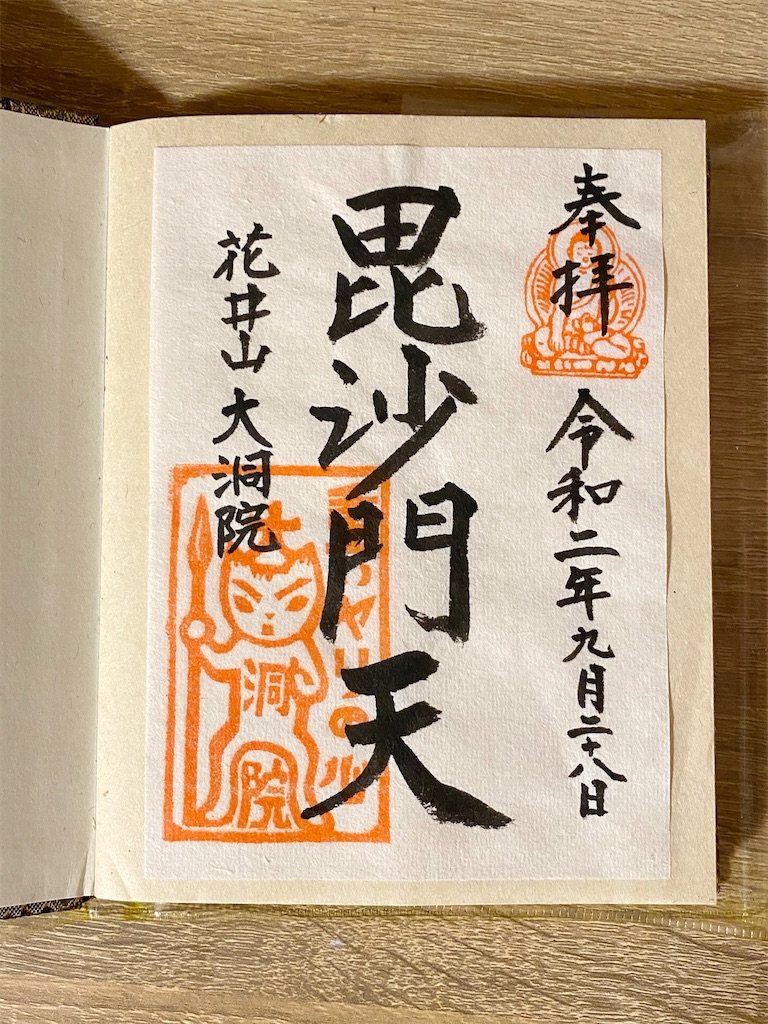 奉拝
令和二年九月二十八日
毘沙門天
花井山 大洞院
洞
院